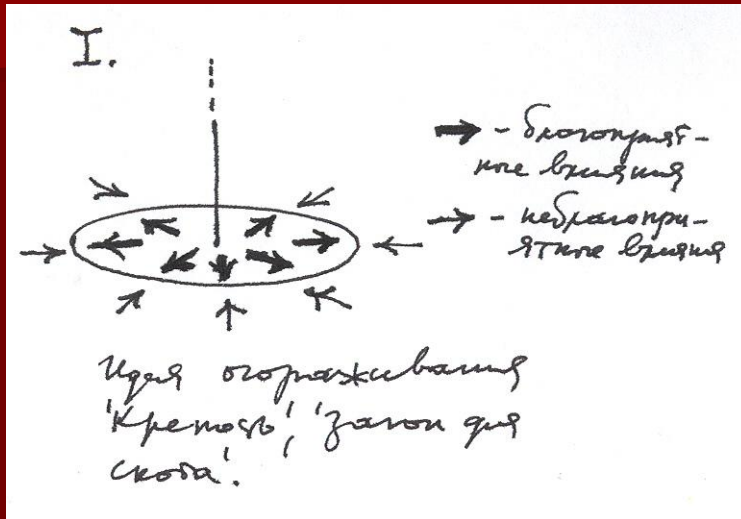 I.
→ - благоприят-
ные влияния
→ - неблагопри-
ятные влияния
Идея огораживания
'Крепость', 'загон для
скота'.